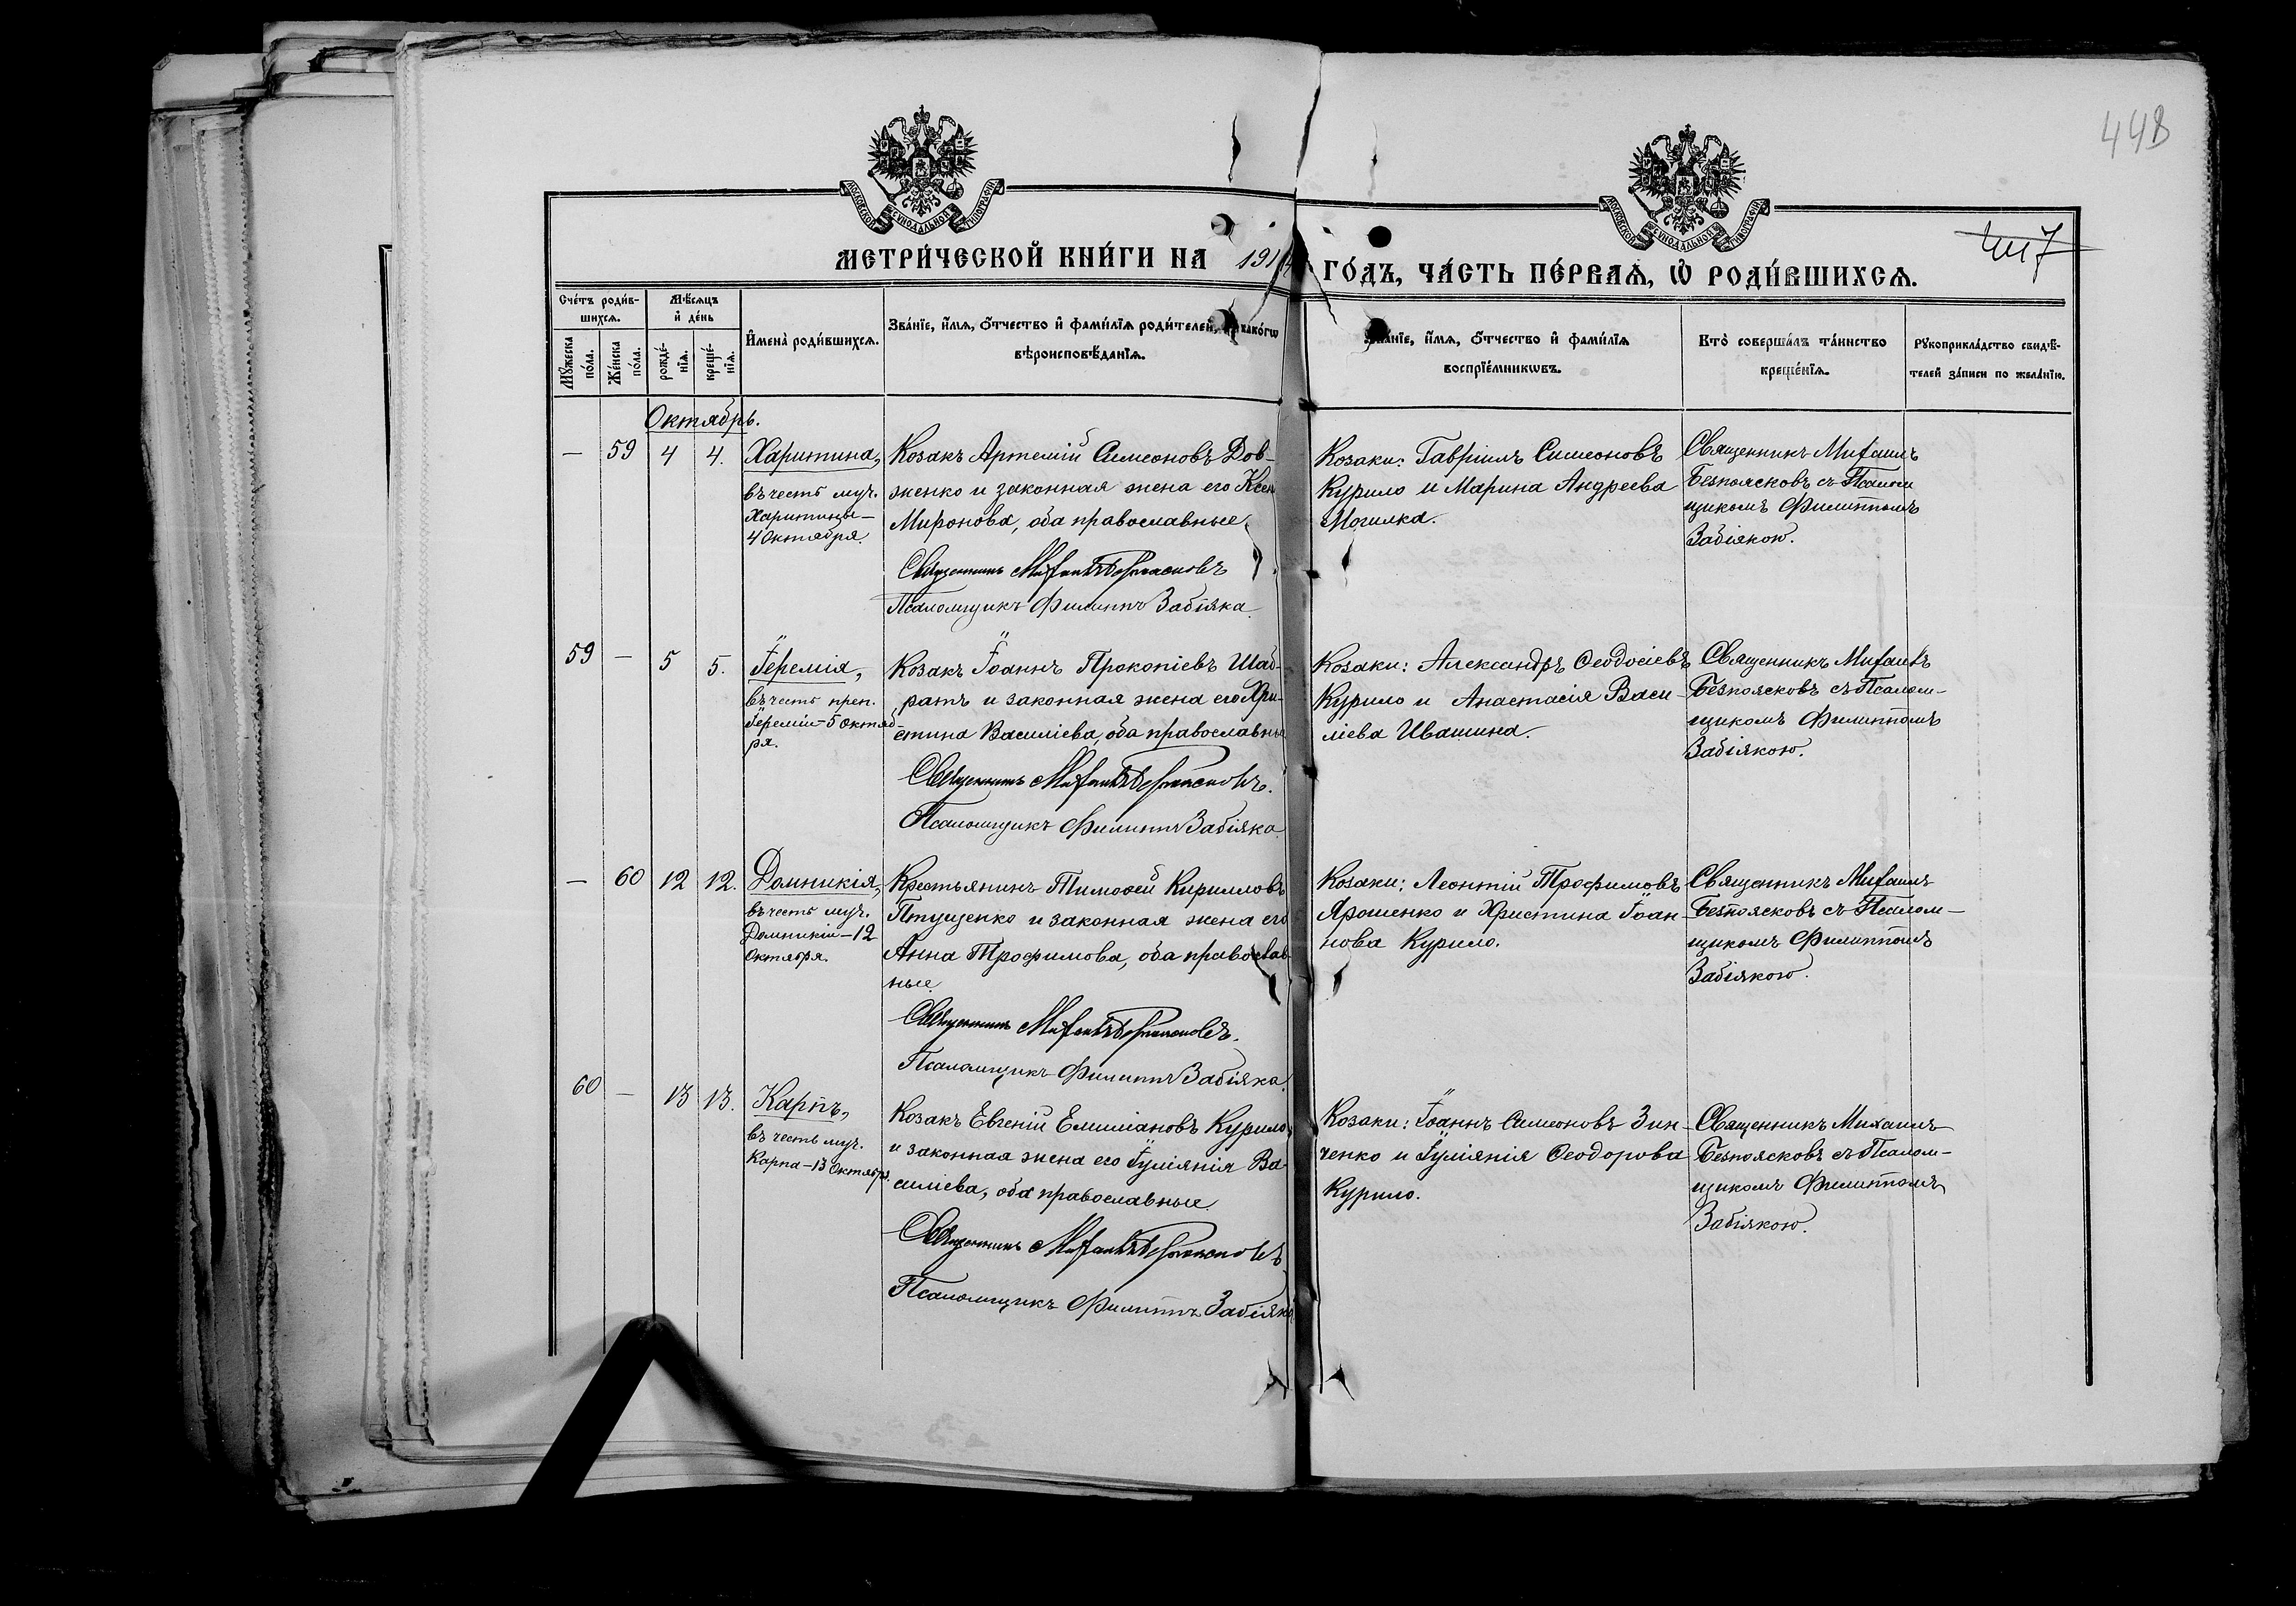 448
447
МОСКОВСКОЙ СѴНОДАЛЬНОЙ ТИПОГРАФІИ
МОСКОВСКОЙ СѴНОДАЛЬНОЙ ТИПОГРАФІИ
МЕТРИ́ЧЕСКОЙ КНИ́ГИ НА 1914 ГО́ДЪ, ЧА́СТЬ ПЕ́РВАЯ, Ѡ҆ РОДИ́ВШИХСЯ.
Сче́тъ роди́в-
шихся.
Мꙋ́жеска
по́ла.
Же́нска
по́ла.
Мѣ́сяцъ
и҆ де́нь
рожде́-
нїя.
креще́-
нїя.
И҆мена̀ роди́вшихся.
Зва́нїе, и҆́мя, ѻ҆́тчество и҆ фами́лїя роди́телей, и҆ како́гѡ
вѣроисповѣ́данїя.
Зва́нїе, и҆́мя, ѻ҆́тчество и҆ фами́лїя
воспрїе́мникѡвъ.
Кто̀ соверша́лъ та́инство
креще́нїя.
Рꙋкоприкла́дство свидѣ́-
телей за́писи по жела́нїю.
Октябрь.
— 59 4 4.
Харитина,
въ честь муч.
Харитины —
4 Октября.
Козакъ Артемій Симеоновъ Дов-
женко и законная жена его Ксен
Миронова, оба православные
Священникъ Михаилъ Безпоясковъ
Псаломщикъ Филиппъ Забіяка.
Козаки: Гавріилъ Симеоновъ
Курило и Марина Андреева
Могилка.
Священникъ Михаилъ
Безпоясковъ съ Псалом
щикомъ Филиппомъ
Забіякою.
59 — 5 5.
Іеремія,
въ честь преп.
Іереміи — 5 Октяб-
ря.
Козакъ Іоаннъ Прокопіевъ Шаб-
ратъ и законная жена его Хри-
стина Василіева, оба православные
Священникъ Михаилъ Безпоясковъ.
Псаломщикъ Филиппъ Забіяка.
Козаки: Александръ Феодосіевъ
Курило и Анастасія Васи-
ліева Ивашина.
Священникъ Михаилъ
Безпоясковъ съ Псалом-
щикомъ Филиппомъ
Забіякою.
— 60 12 12.
Домникія,
въ честь муч.
Домникіи — 12
Октября.
Крестьянинъ Тимофей Кирилловъ
Птущенко и законная жена его
Анна Трофимова, оба православ
ные.
Священникъ Михаилъ Безпоясковъ.
Псаломщикъ Филиппъ Забіяка.
Козаки: Леонтій Трофимовъ
Ярошенко и Христина Іоан-
нова Курило.
Священникъ Михаилъ
Безпоясковъ съ Псалом-
щикомъ Филиппомъ
Забіякою.
60 — 13 13.
Карпъ,
въ честь муч.
Карпа — 13 Октябр.
Козакъ Евгеній Емиліановъ Курило,
и законная жена его Іуліянія Ва-
силіева, оба православные.
Священникъ Михаилъ Безпоясковъ
Псаломщикъ Филиппъ Забіяка
Козаки: Іоаннъ Симеоновъ Зин-
ченко и Іуліянія Феодорова
Курило.
Священникъ Михаилъ
Безпоясковъ съ Псалом-
щикомъ Филиппомъ
Забіякою.